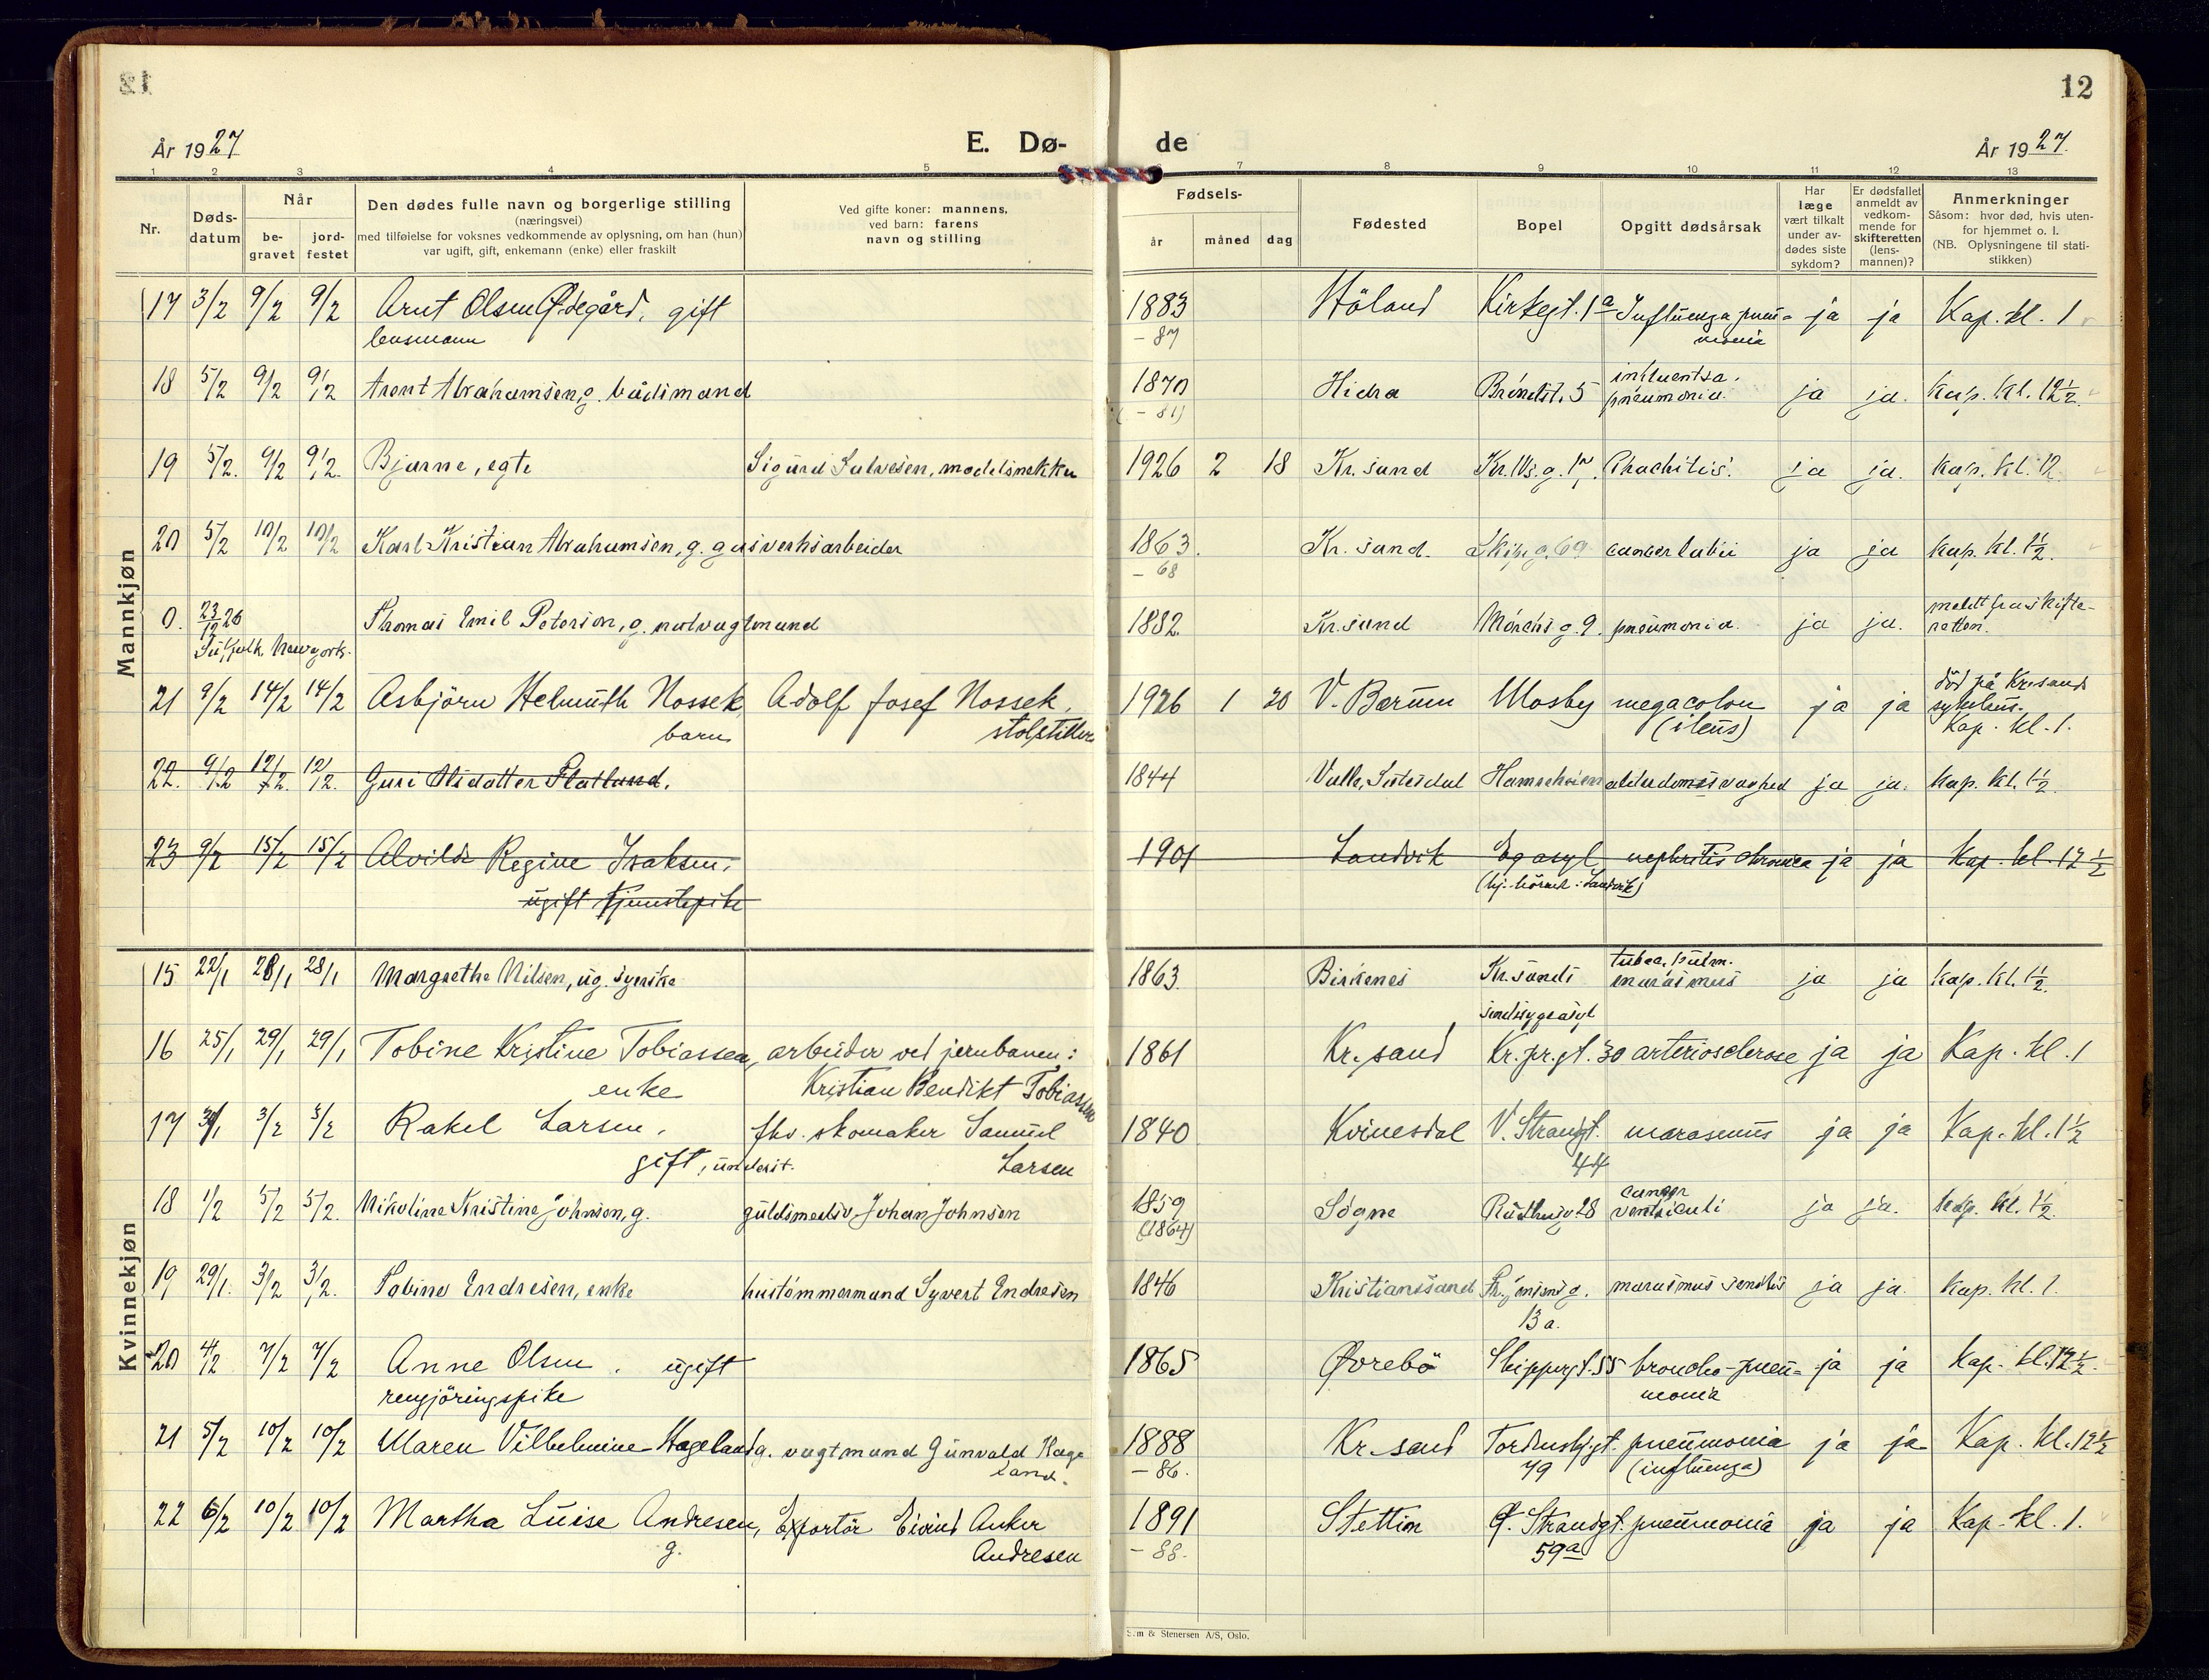 12
År 1927
E. Dø-
de
År 1927.
1 2 3 4 5 7 8 9 10 11 12 13
Nr.
Døds-
datum
Når
be-
gravet
jord-
festet
Den dødes fulle navn og borgerlige stilling
(næringsvei)
med tilføielse for voksnes vedkommende av oplysning, om han (hun)
var ugift, gift, enkemann (enke) eller fraskilt
Ved gifte koner: mannens,
ved barn: farens
navn og stilling
Fødsels-
år
måned
dag
Fødested
Bopel
Opgitt dødsårsak
Har
læge
vært tilkalt
under av-
dødes siste
sykdom?
Er dødsfallet
anmeldt av
vedkom-
mende for
skifteretten
(lens-
mannen)?
Anmerkninger
Såsom: hvor død, hvis uten-
for hjemmet o. l.
(NB. Oplysningene til stati-
stikken)
Mannkjøn
17 3/2 9/2 9/2 Arnt Olsen Ødegård, gift 1883 Höland Kirkegt. 1a Influenza pneu- ja ja Kap. kl. 1
lensmann - 87 monia
18 5/2 9/2 9/2 Arent Abrahamsen, g. bådsmand 1870 Hidra Bröndst. 5 influentsa, ja ja. Kap. Kl. 12½.
(- 81) pneumonia.
19 5/2. 9/2 9/2. Bjarne, egte Sigurd Salvesen, modelsnekker 1926 2 18 Kr.sand Rhachitis. ja ja. Kap. kl. 12.
20 5/2 10/2 10/2 Karl Kristian Abrahamsen, g. gasverksarbeider 1863. Kr. sand. Skip.g. 69 cancer labii ja ja Kap. kl. 1½.
- 68
0. 23/12 26 Thomas Emil Peterson, g. natvagtmand 1882. Kr.sand Mörchs g. 9. pneumonia. ja ja. meldt fra skifte-
Suffolk Newyork. retten.
21 9/2 14/2 14/2 Asbjörn Helmuth Nossek Adolf Josef Nossek, 1926 1 20 V. Bærum Mosby megacolon ja ja död på Kr.sands
barn (ileus) sykehus.
Kap. kl. 1.
22. 9/2 12/2. 12/2. Guri Olsdatter Flatland. 1844 Valle, Setesdal alderdomssvaghed ja ja. Kap. Kl. 1½.
23 9/2 15/2 15/2 Alvilde Regine Isaksen, 1901 Landvik Egasyl nephritis chronica ja ja Kap. kl. 12½
ugift tjenestepike (hj.hörende: Landvik)
Kvinnekjøn
15 22/1 28/1 28/1 Margrethe Nilsen, ug. syerske 1863. Birkenes Kr.sands tuberc. pulm. ja ja Kap. Kl. 1½.
sindssygeasyl marasmus
16 25/1 29/1 29/1 Tobine Kristine Tobiassen, arbeider ved jernbanen: 1861 Kr.sand Kr.pr.gt. 30 arteriosclerose ja ja Kap. kl. 1
enke Kristian Bendikt Tobiassen
17 3/2 3/2 Rakel Larsen, fhv. skomaker Samuel 1840 Kvinesdal V. Strandgt. marasmus ja ja Kap. kl. 1½
gift, underst. Larsen 44
18 1/2 5/2 5/2. Nikoline Kristine Johnsen, g. guldsmedsv. Johan Johnsen 1859 Sögne 28 cancer ja ja. Kap. Kl. 1½.
(1864) ventriculi
19 29/1. 3/2 3/2. Tobine Endresen, enke hustömmermand Syvert Endresen 1846 Kristianssand marasmus senilis ja ja. Kap. kl. 1.
13 a.
20 4/2 7/2 7/2 Anne Olsen, ugift 1865 Øvrebö Skippergt. 55 broncho-pneu- ja ja Kap. kl. 12½.
rengjöringspike monia
21 5/2 10/2 10/2 Maren Vilhelmine Hageland g. vagtmand Gunvald Hage 1888 Kr.sand Tordenskj.gt. pneumonia ja ja Kap. kl. 12½
land. - 86. 79 (influenza)
22 6/2 10/2 10/2 Martha Luise Andresen, Exportör Eivind Anker 1891 Stettin Ø. Strandgt. pneumonia ja ja Kap. kl. 1.
g. Andresen - 88. 59a
& Stenersen A/S, Oslo.